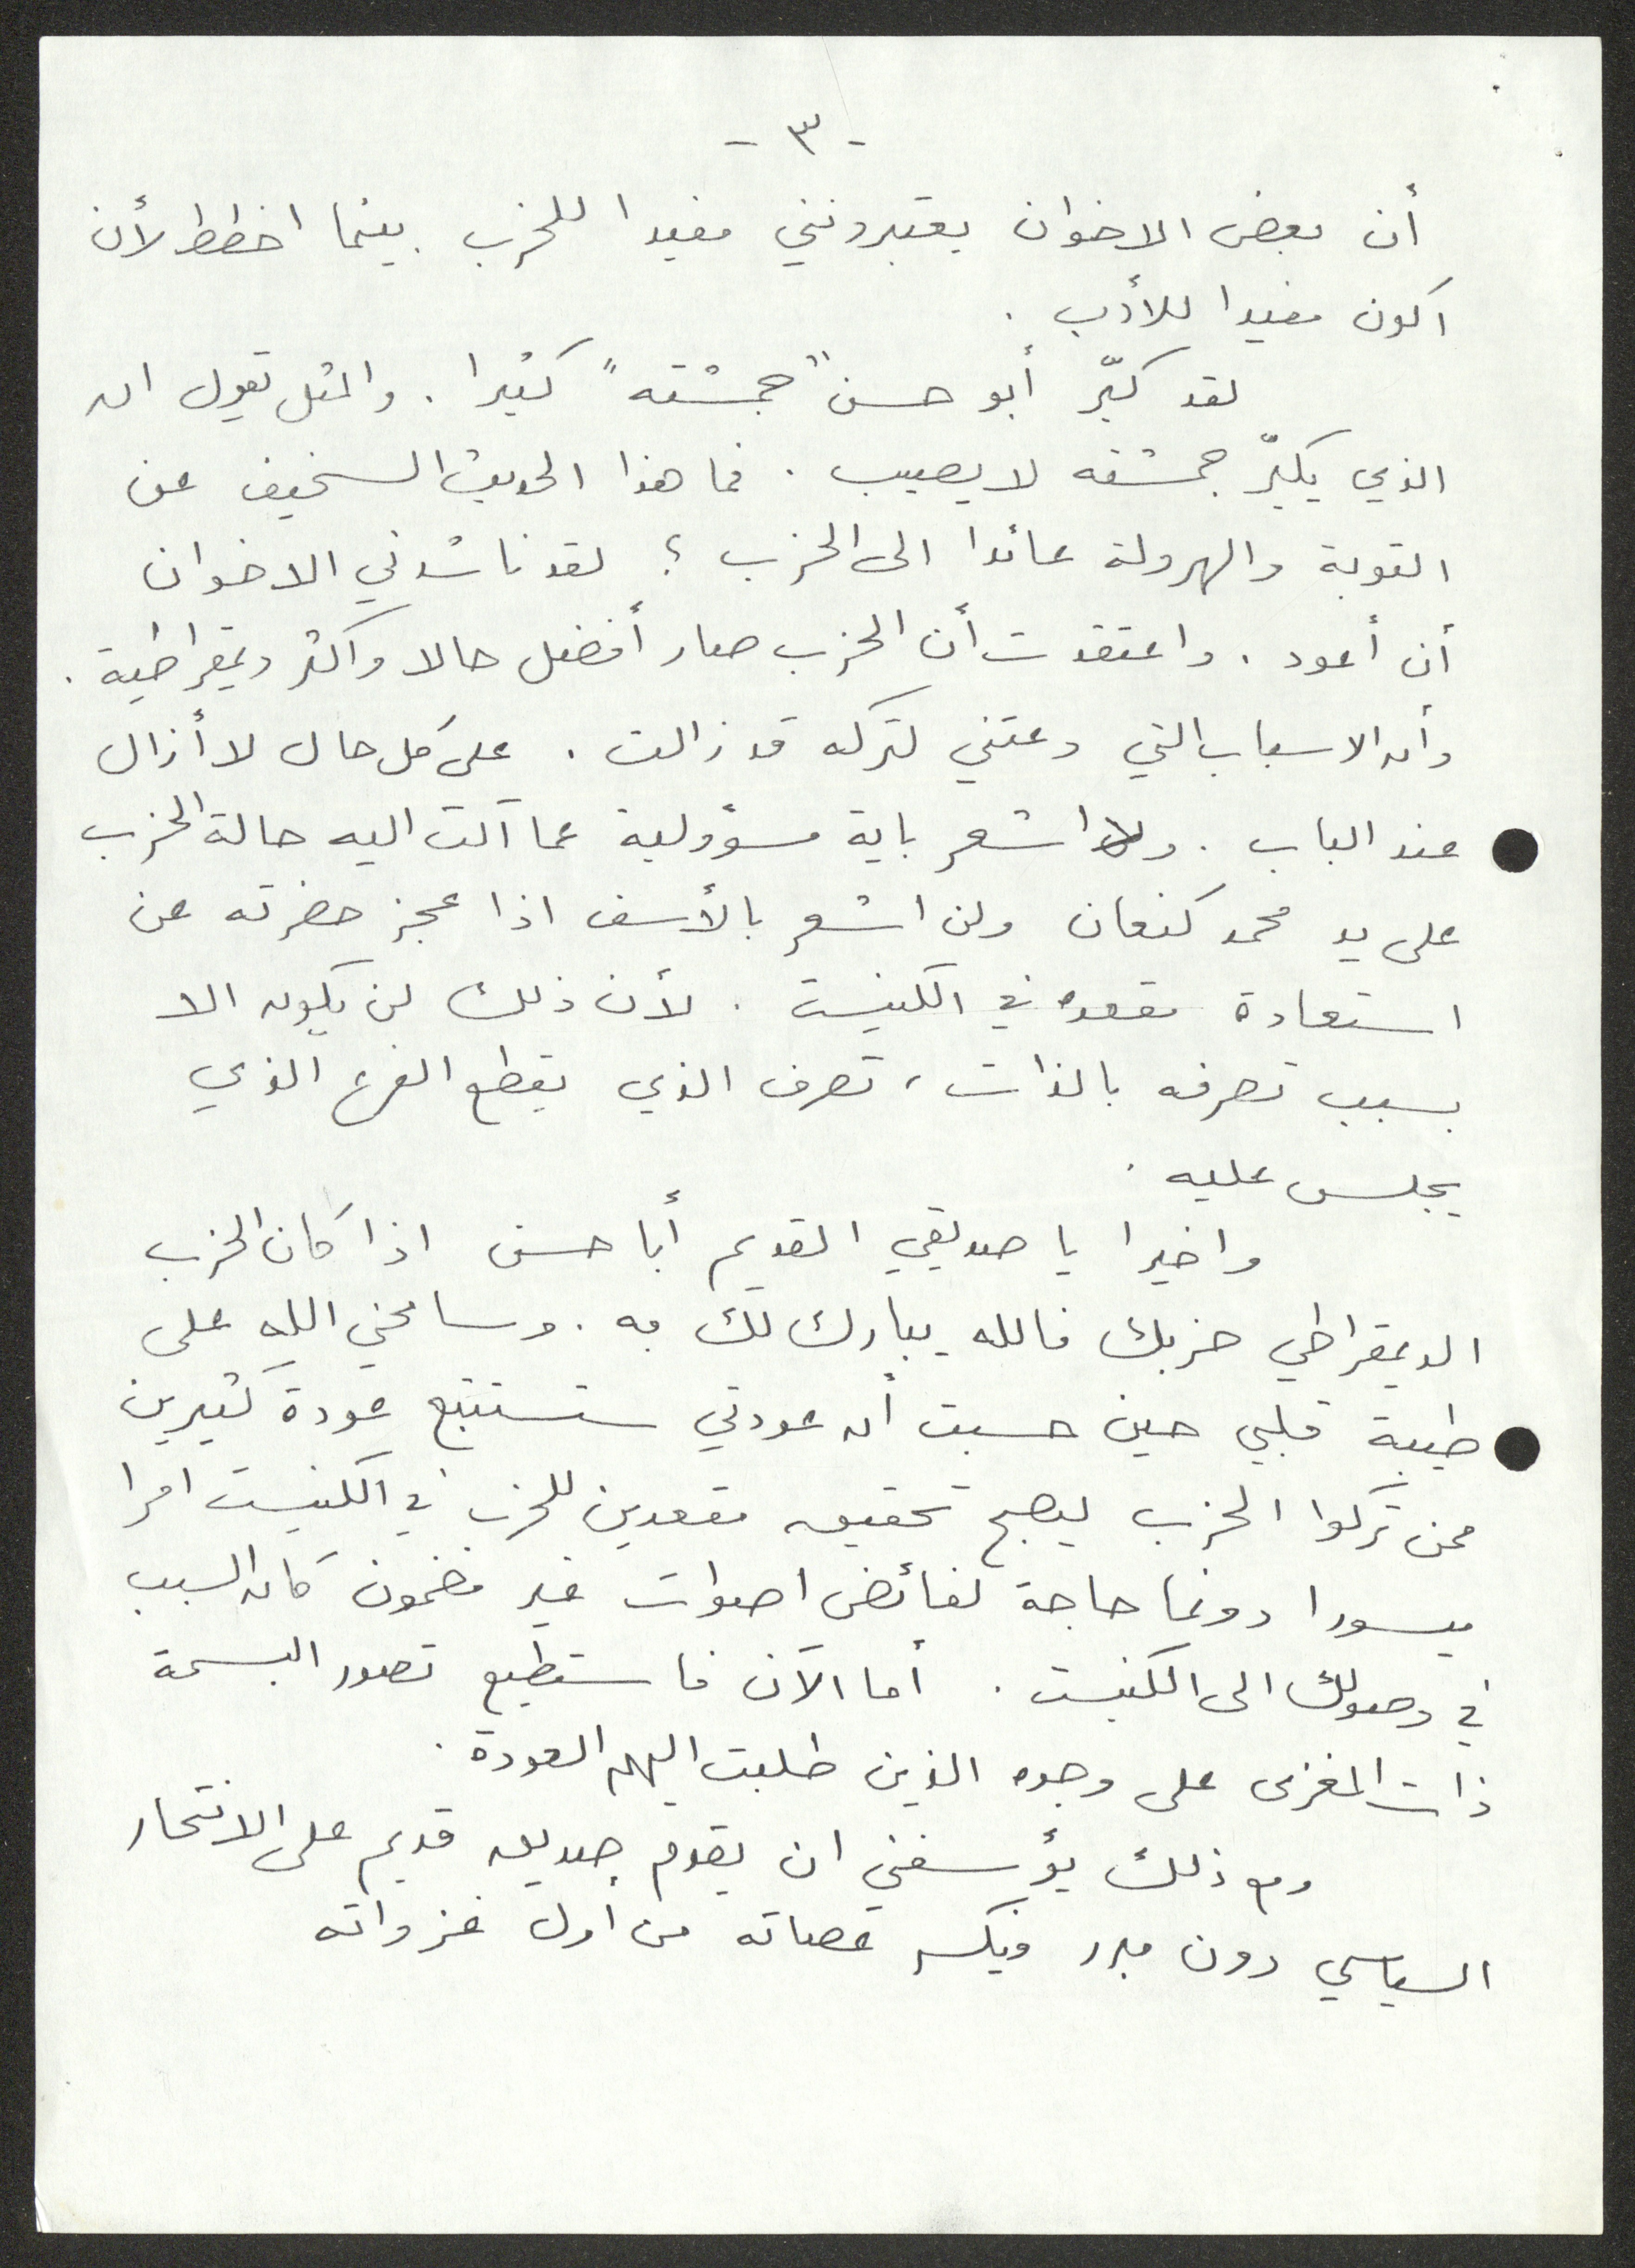 - ٣ -
أن بعض الاخوان يعتبرونني مفيدا للحزب بينما اخطط لأن
اكون مفيدا للأدب .
لقد كبّر أبو حسن "جمشته" كثيرا . والمثل يقول ان
الذي يكبّر جمشته لا يصيب . فما هذا الحديث السخيف عن
التوبة والهرولة عائدا الى الحزب ؟ لقد ناشدني الاخوان
أن أعود . واعتقدت أن الحزب صار أفضل حالا واكثر ديمقراطية .
وأن الاسباب التي دعتني لتركه قد زالت . على كل حال لا أزال
عند الباب . ولا اشعر باية مسؤولية عما آلت اليه حالة الحزب
على يد محمد كنعان ولن اشعر بالأسف اذا عجز حضرته عن
استعادة مقعده في الكنيست . لأن ذلك لن يكون الا
بسبب تصرفه بالذات ، تصرف الذي يقطع الفرع الذي
يجلس عليه .
واخيرا يا صديقي القديم أبا حسن اذا كان الحزب
الديمقراطي حزبك فالله يبارك لك به . وسامحني الله على
طيبة قلبي حين حسبت أن عودتي ستستتبع عودة كثيرين
ممن تركوا الحزب ليصبح تحقيق مقعدين للحزب في الكنيست امرا
ميسورا دونما حاجة لفائض اصوات غير مضمون كان السبب
في وصولك الى الكنيست . أما الآن فاستطيع تصور البسمة
ذات المغزى على وجوه الذين طلبت اليهم العودة .
ومع ذلك يؤسفني ان يقدم صديق قديم على الانتحار
السياسي دون مبرر ويكسر عصاته من اول غزواته